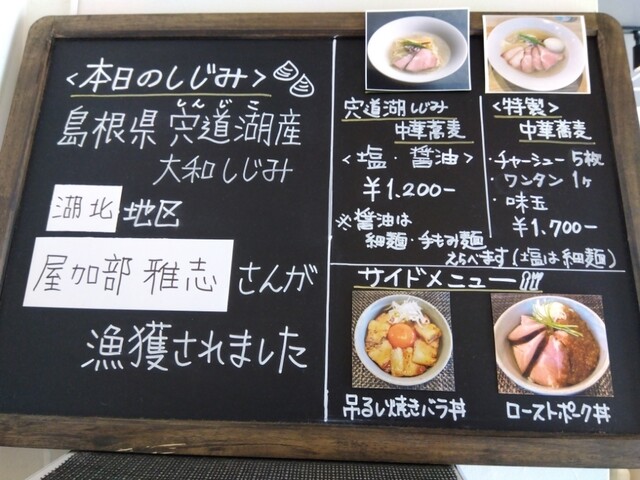 <本日のしじみ>
しんじこ
島根県 宍道湖産
大和しじみ
湖北 地区
屋加部 雅志 さんが
漁獲されました
宍道湖しじみ
中華蕎麦
<塩・醤油>
¥1.200-
※醤油は
細麺・手もみ麺
えらべます(塩は細麺)
<特製>
中華蕎麦
・チャーシュー 5枚
・ワンタン 1ヶ
・味玉
¥1.700-
サイドメニュー
吊るし焼きバラ丼
ローストポーク丼